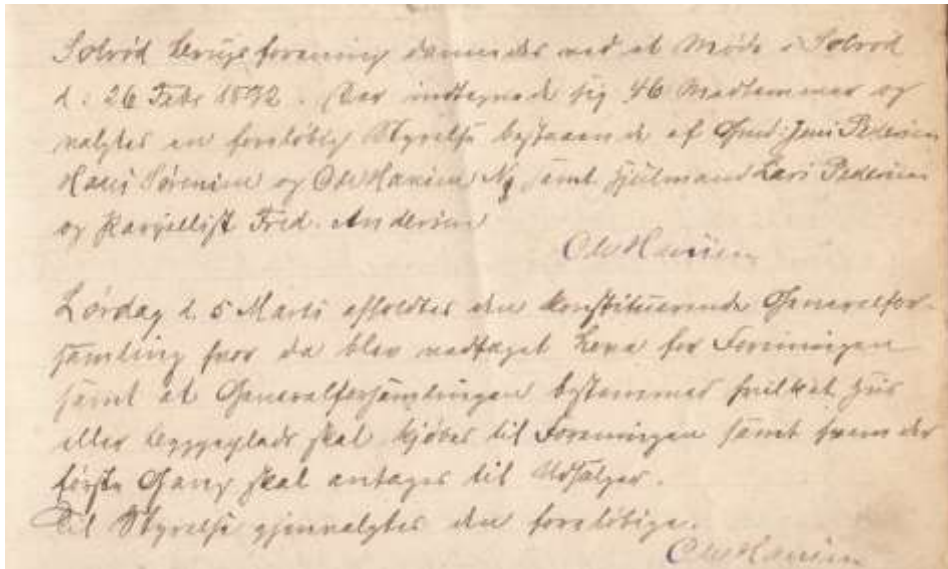 Solrød Brugsforening dannedes ved et Møde i Solrød
d. 26 Febr 1892. Der indtegnede sig 46 Medlemmer og
valgtes en foreløbig Styrelse bestaaende af Gmd. Jens Pedersen
Hans Sørensen og Ole Hansen Ny samt Hjulmand Lars Pedersen
og Parcellist Fred. Andersen
Ole Hansen
Lørdag d. 5 Marts afholdtes den konstituerende Generalfor-
samling hvor da blev vedtaget Love for Foreningen
samt at Generalforsamlingen bestemmer hvilket Hus
eller Byggeplads skal kjøbes til Foreningen samt hvem der
første Gang skal antages til Udsalger.
Til Styrelse gjenvalgtes den foreløbige.
Ole Hansen